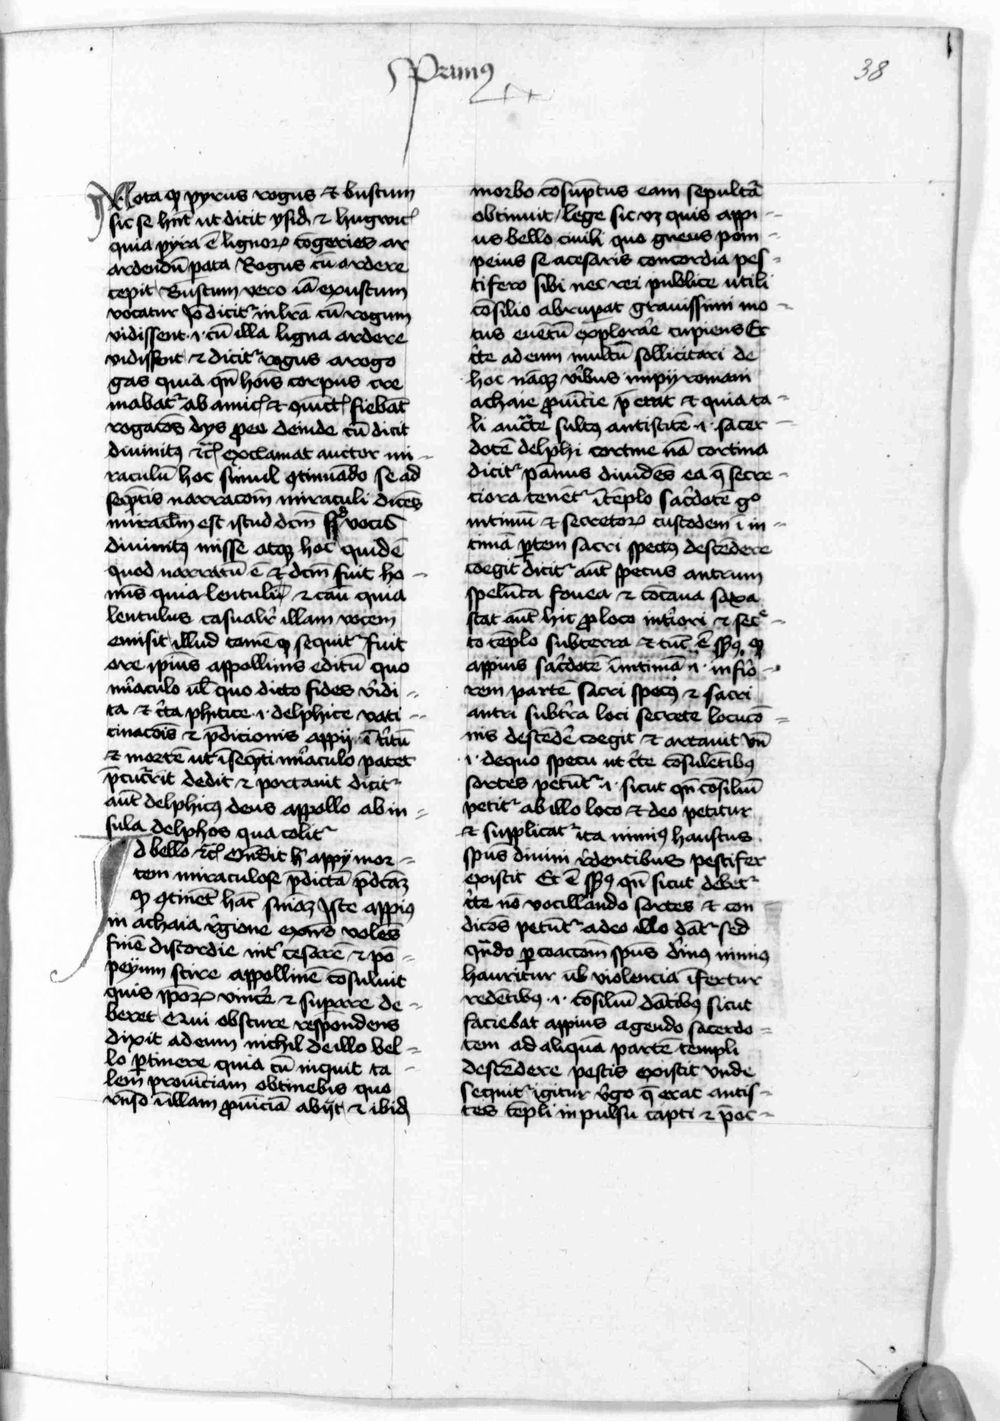 Primus
38
Nota qͥ pyrus rogus et bustum
sic se hn̄t ut dicit ysid. et hugwic͛
quia pyra ē lignoꝝ congeries ar
ardendū pata Rogus cū ardere
cepit Bustum vero iā exustum
vocatur dicit͛ in lrā cū rogum
vidissent .i. cū illa ligna ardere
vidissent et dicit͛ rogus a rogo
gas quia qn̄ hoīs corpus cre
mabat͛ ab amic͛ et fiebāt
rogacōs dys ꝓ eo deinde cū dicit
diuinitꝰ ⁊c͛ exclamat auctor mi
raculū hoc simul ꝯtinuādo se ad
seqūtis narracoēm miraculi dicēs
est istud dcm̄ vocis
diuinitꝰ misse atqꝫ hoc quidē
quod narratū ē et dcm̄ fuit ho
mīs quia lentulū et cāu quia
lentulus casualit͛ illam vocem
emisit illud tamē qͥ sequit͛ fuit
ore ipīus appollinis editū quo
mͥaculo ul̄ quo dicto fides vͥdi
ta et cͥta phitice .i. delphice vati
cinacōis et p̄dicionis appij ī tͥtū
et mortē ut ī seqn̄ti mͥaculo patet
dedit et portauit dicit͛
aūt delphicꝰ deus appollo ab in
sula delphos qua colit͛
Ad bello ⁊c͛ Ondit h͛ appij mor
tem miraculose p̄dictā
qͥ ꝯtinet hāc sn̄iaꝫ Iste appiꝰ
in achaia rͥgione exn̄s volēs
finē discordie int͛ cesarē et po
peyum scire appollinē cōsuluit
quis ipoꝝ vincͥe et supare de
beret Qui obscure respondens
dixit ad eum nichil de illo bel
lo ꝑtinere quia cū inquit ta
lem prouinciam obtinebis quo
ī illam ꝓuīciā abijt et ibidͤ
morbo cōsūptus eam sepultā
obtinuit lege sic vꝫ quis appi
us bello ciuili quo gneus pom
peius se a cesaris concordia pes
tifero sibi nec rei publice utili
cōsilio abrupat grauissimi mo
tus euētū explorāe cupiens Et
cͥte ad eum multū sollicitari de
hoc nāqꝫ vͥbus impij romani
achaie ꝓuīcie p̄erat et quia ta
li auctͥte fultꝰ antistitē .i. sacer
dotē delphi cortine nā cortina
dicit͛ pānus diuidēs ea q̄ secre
ciora tenet͛ ī tēplo sacͥdotē go
intimū et secretoꝝ custodem ī in
timā ꝑtem sacri specꝰ descēdere
coegit dicit͛ aūt specus antrum
spelūca fouea et cōcaua saxa
stat aūt hic ꝓ loco intͥiori et secͤ
to tēplo subterra et tūc ē sn̄sꝰ qͥ
appius sacͥdotē ī intimā .i. infͥio
rem partē sacri specꝰ et sacri
antri subtͥra loci secrete locucō
nis descēdͥe coegit et artauit vn̄
.i. de quo specu ut cͥte cōsulētibꝰ
sortes petūt͛ .i. sicut qn̄ cōsiliū
petit͛ ab illo loco et deo petitur
et supplicat͛ ita nimiꝰ haustus
spūs diuini rͥdentibus pestifer
existit Et ē sn̄sꝰ qn̄ sicut debet͛
cͥte nō vocillādo sortes et con
dicōs petūt͛ a deo illo dat͛ sed
qn̄do ꝑ coaccōm spūs dͥinꝰ nimiꝰ
hauritur ul̄ violencia īfertur
redētibꝰ .i. cōsiliū dātibꝰ sicut
faciebat appius agendo sacerdo
tem ad aliquā partē templi
descēdere pestis existit vnde
sequit͛ igitur vͥgo q̄ erat antis
tes tēpli inpulsu capti et